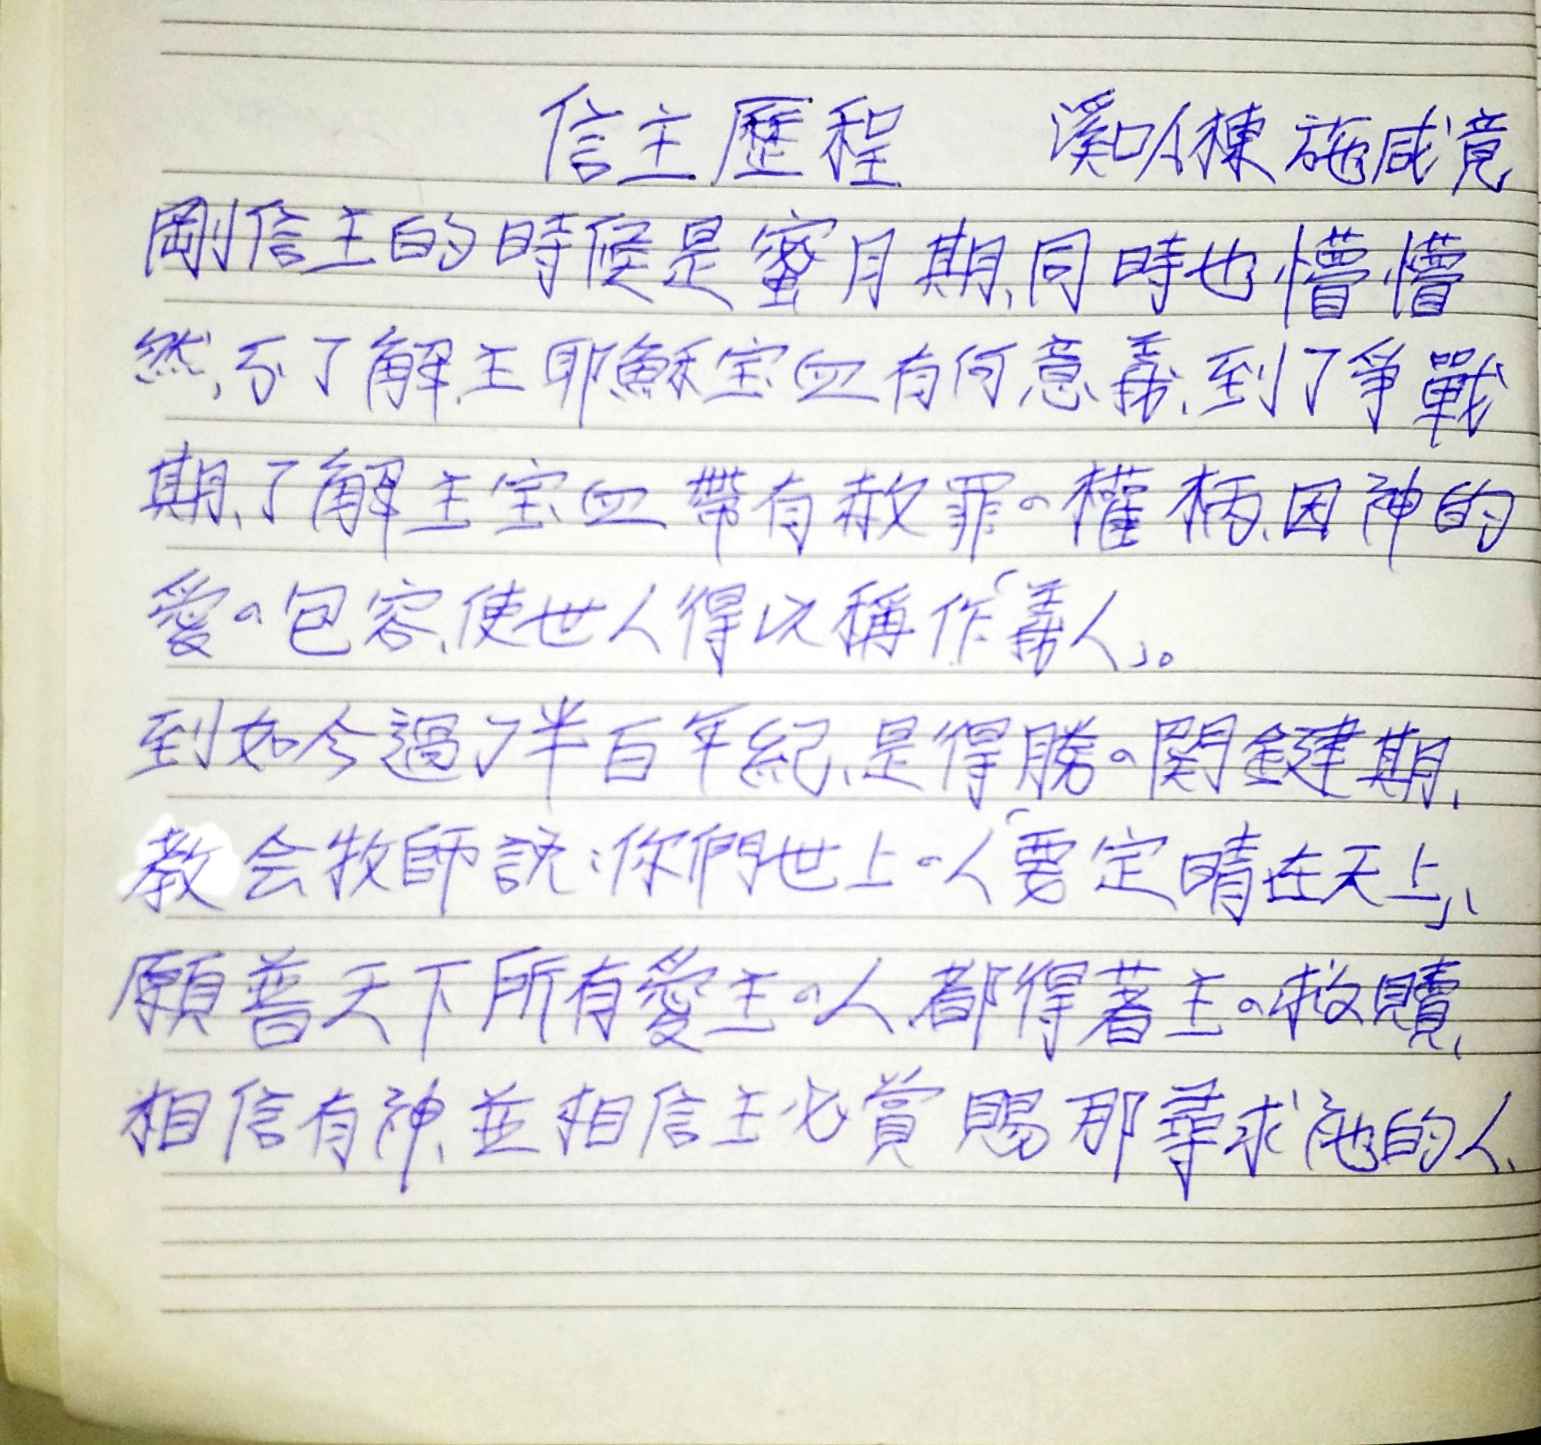 信主歷程 溪口A棟 施咸竟
剛信主的時候是蜜月期、同時也懵懵
然,不了解主耶穌宝血有何意義、到了爭戰
期、了解主宝血帶有赦罪の權柄、因神的
愛の包容、使世人得以稱作「義人」。
到如今過了半百年紀、是得勝の関鍵期、
教会牧師說:你們世上の人「要定晴在天上」、
願普天下所有愛主の人都得著主の救贖、
相信有神、並相信主必賞賜那尋求祂的人、